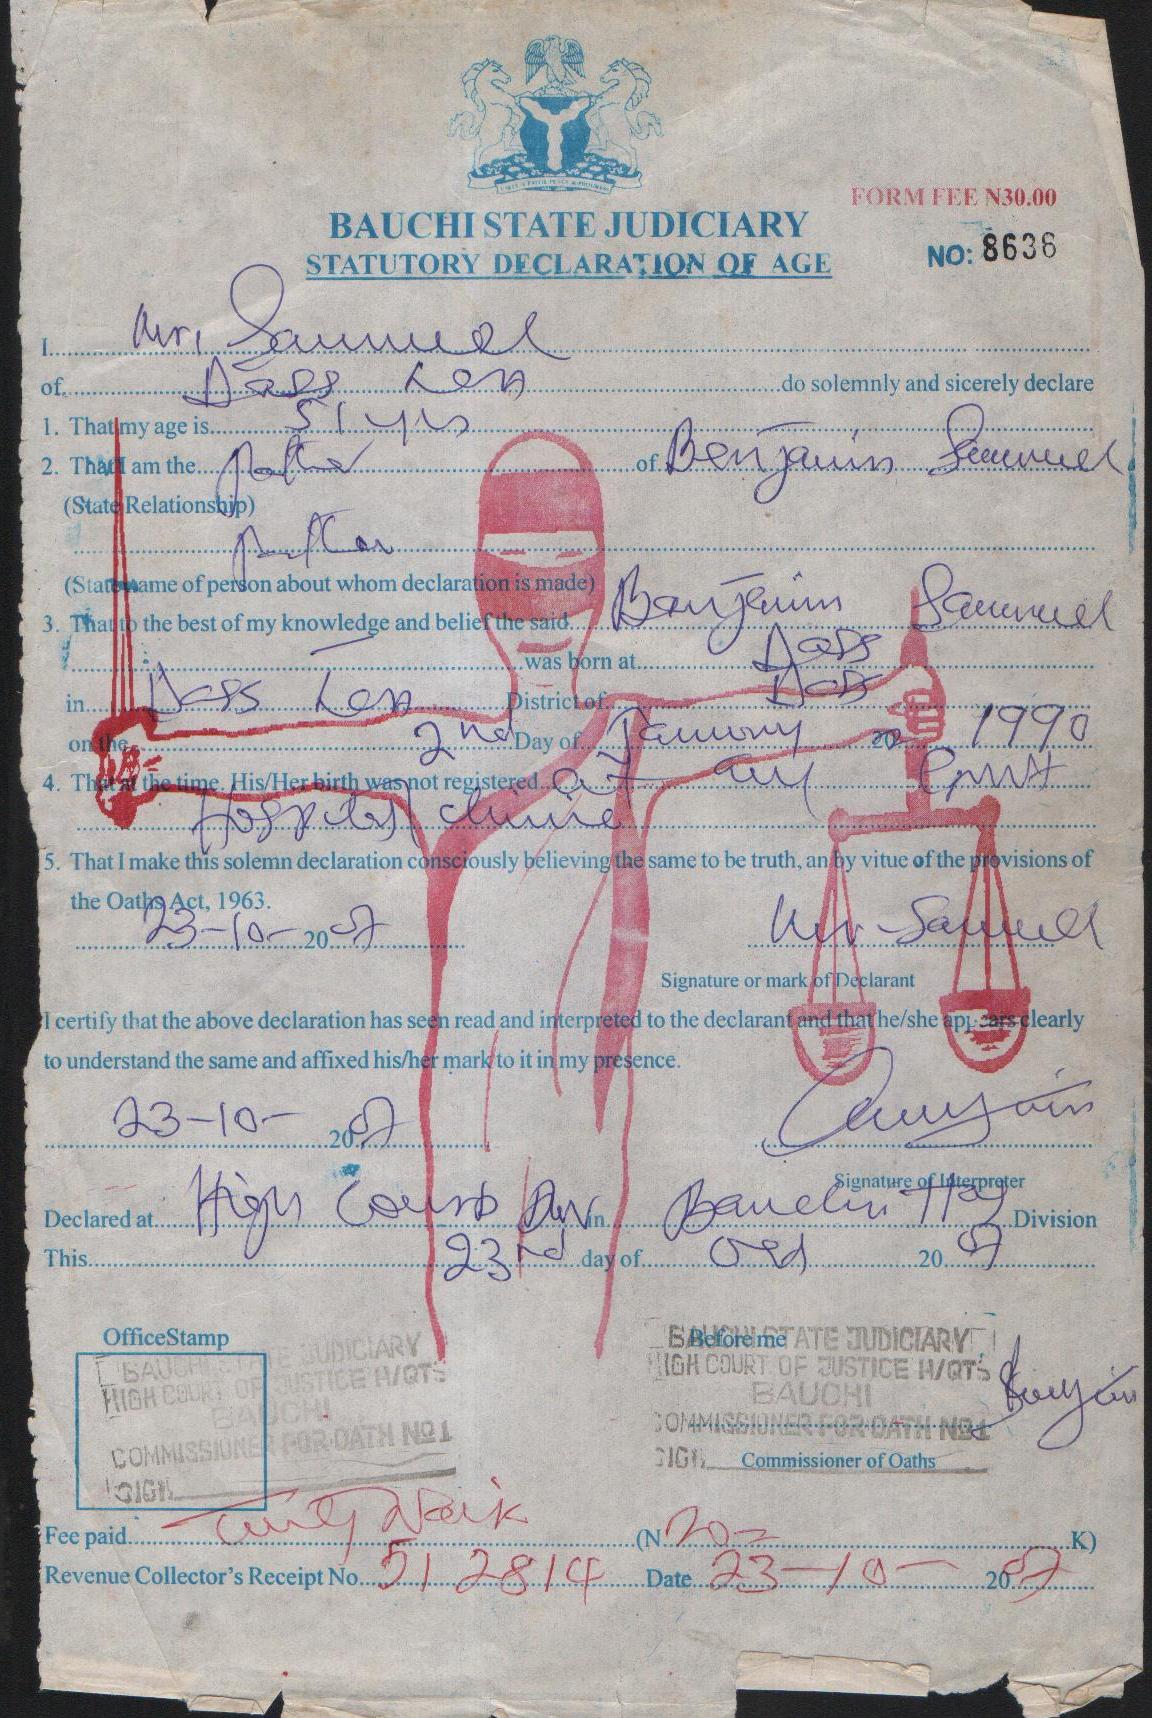 FORM FEE N30.00
BAUCHI STATE JUDICIARY
STATUTORY DECLARATION OF AGE
NO: 8636
I Mr, Sammuel
of Dass do solemnly and sicerely declare
1. That my age is 51 yrs
2. That I am the father of Benjamin Sammuel
(State Relationship)
father
(State name of person about whom declaration is made)
3. That to the best of my knowledge and belief the said Benjamin Sammuel
was born at Dass
in Dass District of Dass
on the 2nd Day of January 20 1990
4. That at the time. His/Her birth was not registered at any Govt
Hospital clinic
5. That I make this solemn declaration consciously believing the same to be truth, an by vitue of the provisions of
the Oaths Act, 1963.
23-10-2007 Mr Samuel
Signature or mark of Declarant
I certify that the above declaration has seen read and interpreted to the declarant and that he/she appears clearly
to understand the same and affixed his/her mark to it in my presence.
23-10-2007
Signature of Interpreter
Declared at High Court in Bauchi Division
This 23rd day of Oct 2007
Office Stamp
BAUCHI STATE JUDICIARY
HIGH COURT OF JUSTICE H/QTS
BAUCHI
COMMISSIONER FOR OATH No 1
SIGN
Before me
BAUCHI STATE JUDICIARY
HIGH COURT OF JUSTICE H/QTS
BAUCHI
COMMISSIONER FOR OATH No 1
SIGN
Commissioner of Oaths
Fee paid Naira (N K)
Revenue Collector's Receipt No. 512814 Date 23-10-2007